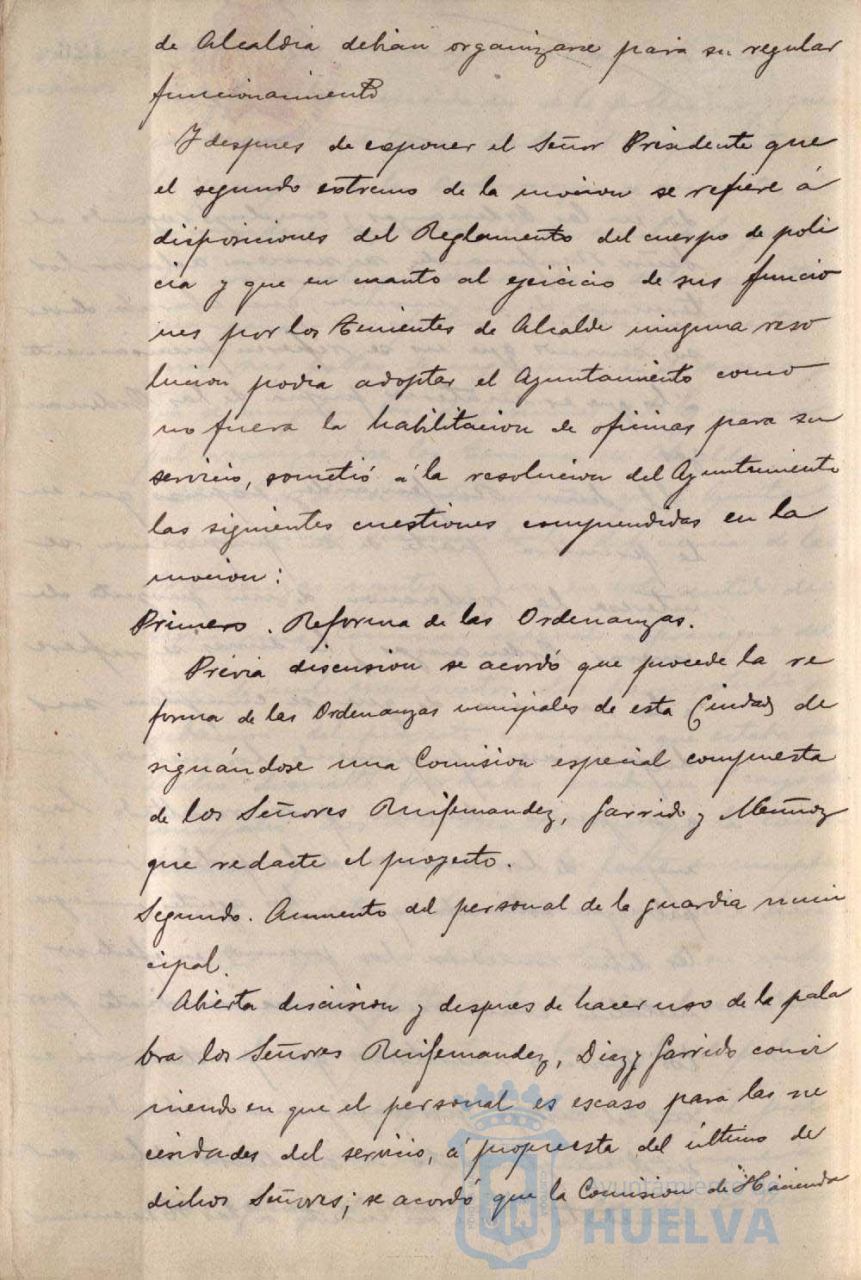 de Alcaldia debian organizarse para su regular
funcionamiento
Y despues de esponer el Señor Presidente que
el segundo estremo de la mocion se refiere á
disposiciones del Reglamento del cuerpo de poli
cia y que en cuanto al ejercicio de sus funcio
nes por los Tenientes de Alcalde ninguna reso
lucion podia adoptar el Ayuntamiento como
no fuera la habilitacion de oficinas para su
servicio, sometió á la resolucion del Ayuntamiento
las siguientes cuestiones comprendidas en la
mocion:
Primero. Reforma de las Ordenanzas.
Prévia discusion se acordó que procede la re
forma de las Ordenanzas municipales de esta Ciudad, de
signándose una Comision especial compuesta
de los Señores Ruifernandez, Garrido y Muñoz
que redacte el proyecto.
Segundo. Aumento del personal de la guardia muni
cipal.
Abierta discusion y despues de hacer uso de la pala
bra los Señores Ruifernandez, Diaz y Garrido convi
niendo en que el personal es escaso para las ne
cesidades del servicio, á propuesta del último de
dichos Señores; se acordó que la Comision de Hacienda
Ayuntamiento de
HUELVA